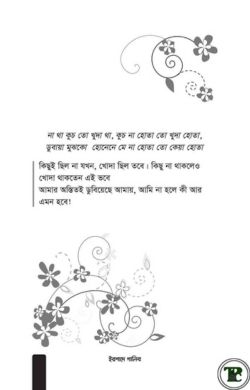 না থা কুচ তো খুদা থা, কুচ না হোতা তো খুদা হোতা,
ডুবায়া মুঝকো হোনেনে মে না হোতা তো কেয়া হোতা
কিছুই ছিল না যখন, খোদা ছিল তবে। কিছু না থাকলেও
খোদা থাকতেন এই ভবে
আমার অস্তিতই ডুবিয়েছে আমায়, আমি না হলে কী আর
এমন হবে!
ইরশাদে গালিব